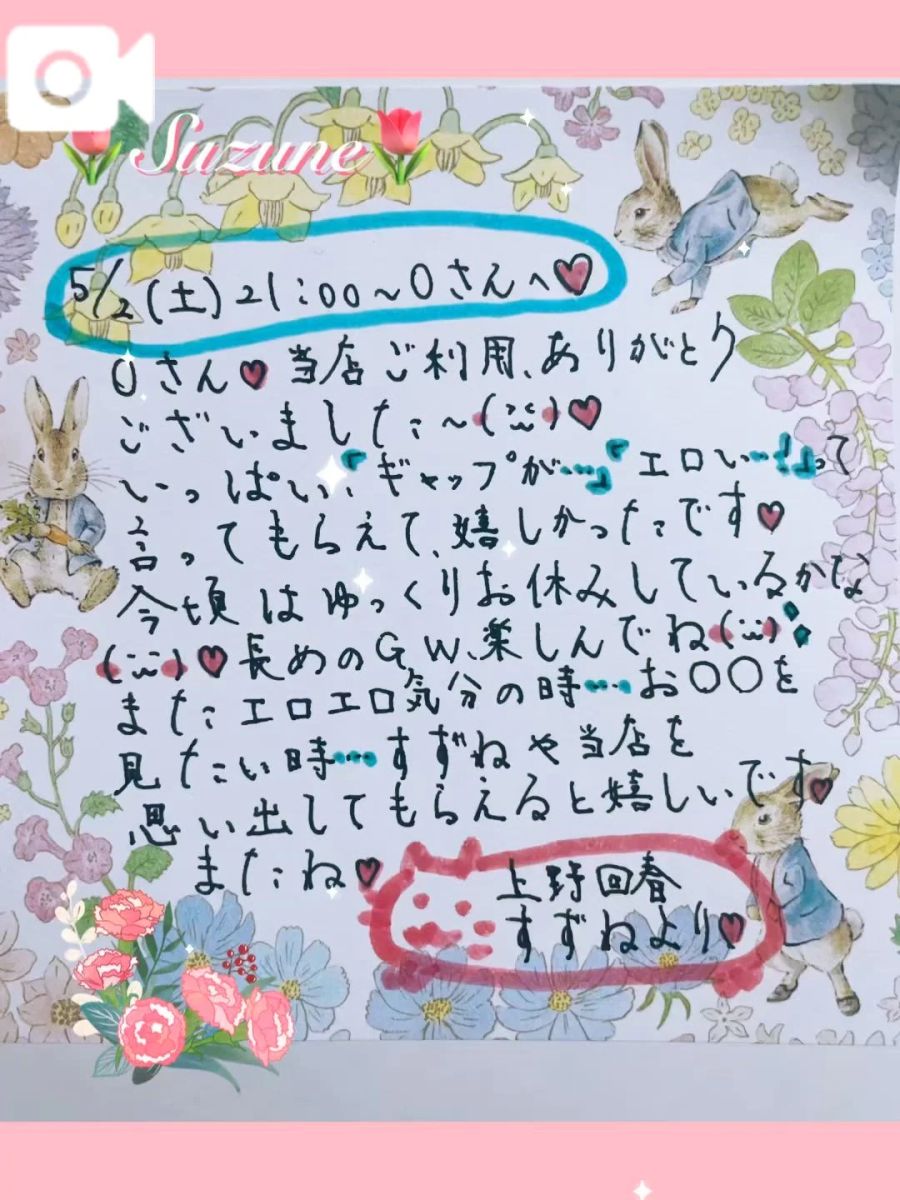 Suzune
5/2(土)21:00~Oさんへ♥
Oさん♥当店ご利用、ありがとう
ございました~(¨̮)♥
いっぱい、『ギャップが…』『エロい…!』って
言ってもらえて、嬉しかったです♥
今頃はゆっくりお休みしているかな
(¨̮)♥長めのGW、楽しんでね(¨̮)
またエロエロ気分の時…お○○を
見たい時…すずねや当店を
思い出してもらえると嬉しいです♥
またね♥
上野回春
すずねより♥